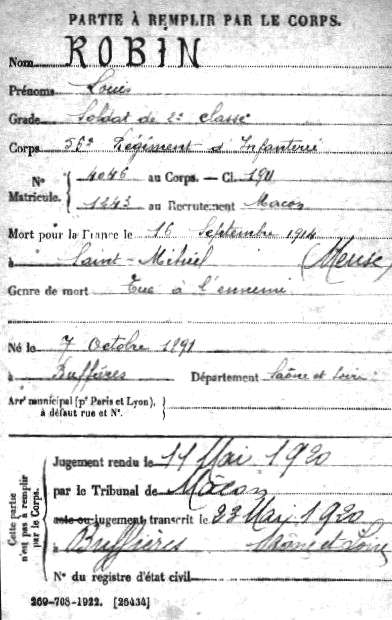 PARTIE À REMPLIR PAR LE CORPS.
Nom ROBIN
Prénoms Louis
Grade Soldat de 2e classe
Corps 56e Régiment d'Infanterie
N° Matricule. { 4046 au Corps. — Cl. 1911
1243 au Recrutement Macon
Mort pour la France le 16 Septembre 1914
à Saint-Mihiel (Meuse)
Genre de mort Tué à l'ennemi
Né le 7 Octobre 1891
à Buffières Département Saône et Loire
Arr' municipal (p' Paris et Lyon), à défaut rue et N°. {
Cette partie n'est pas à remplir par le Corps. {
Jugement rendu le 11 Mai 1920
par le Tribunal de Macon
acte ou jugement transcrit le 23 Mai 1920
à Buffières Saône et Loire
N° du registre d'état civil
269-708-1922. [26434]